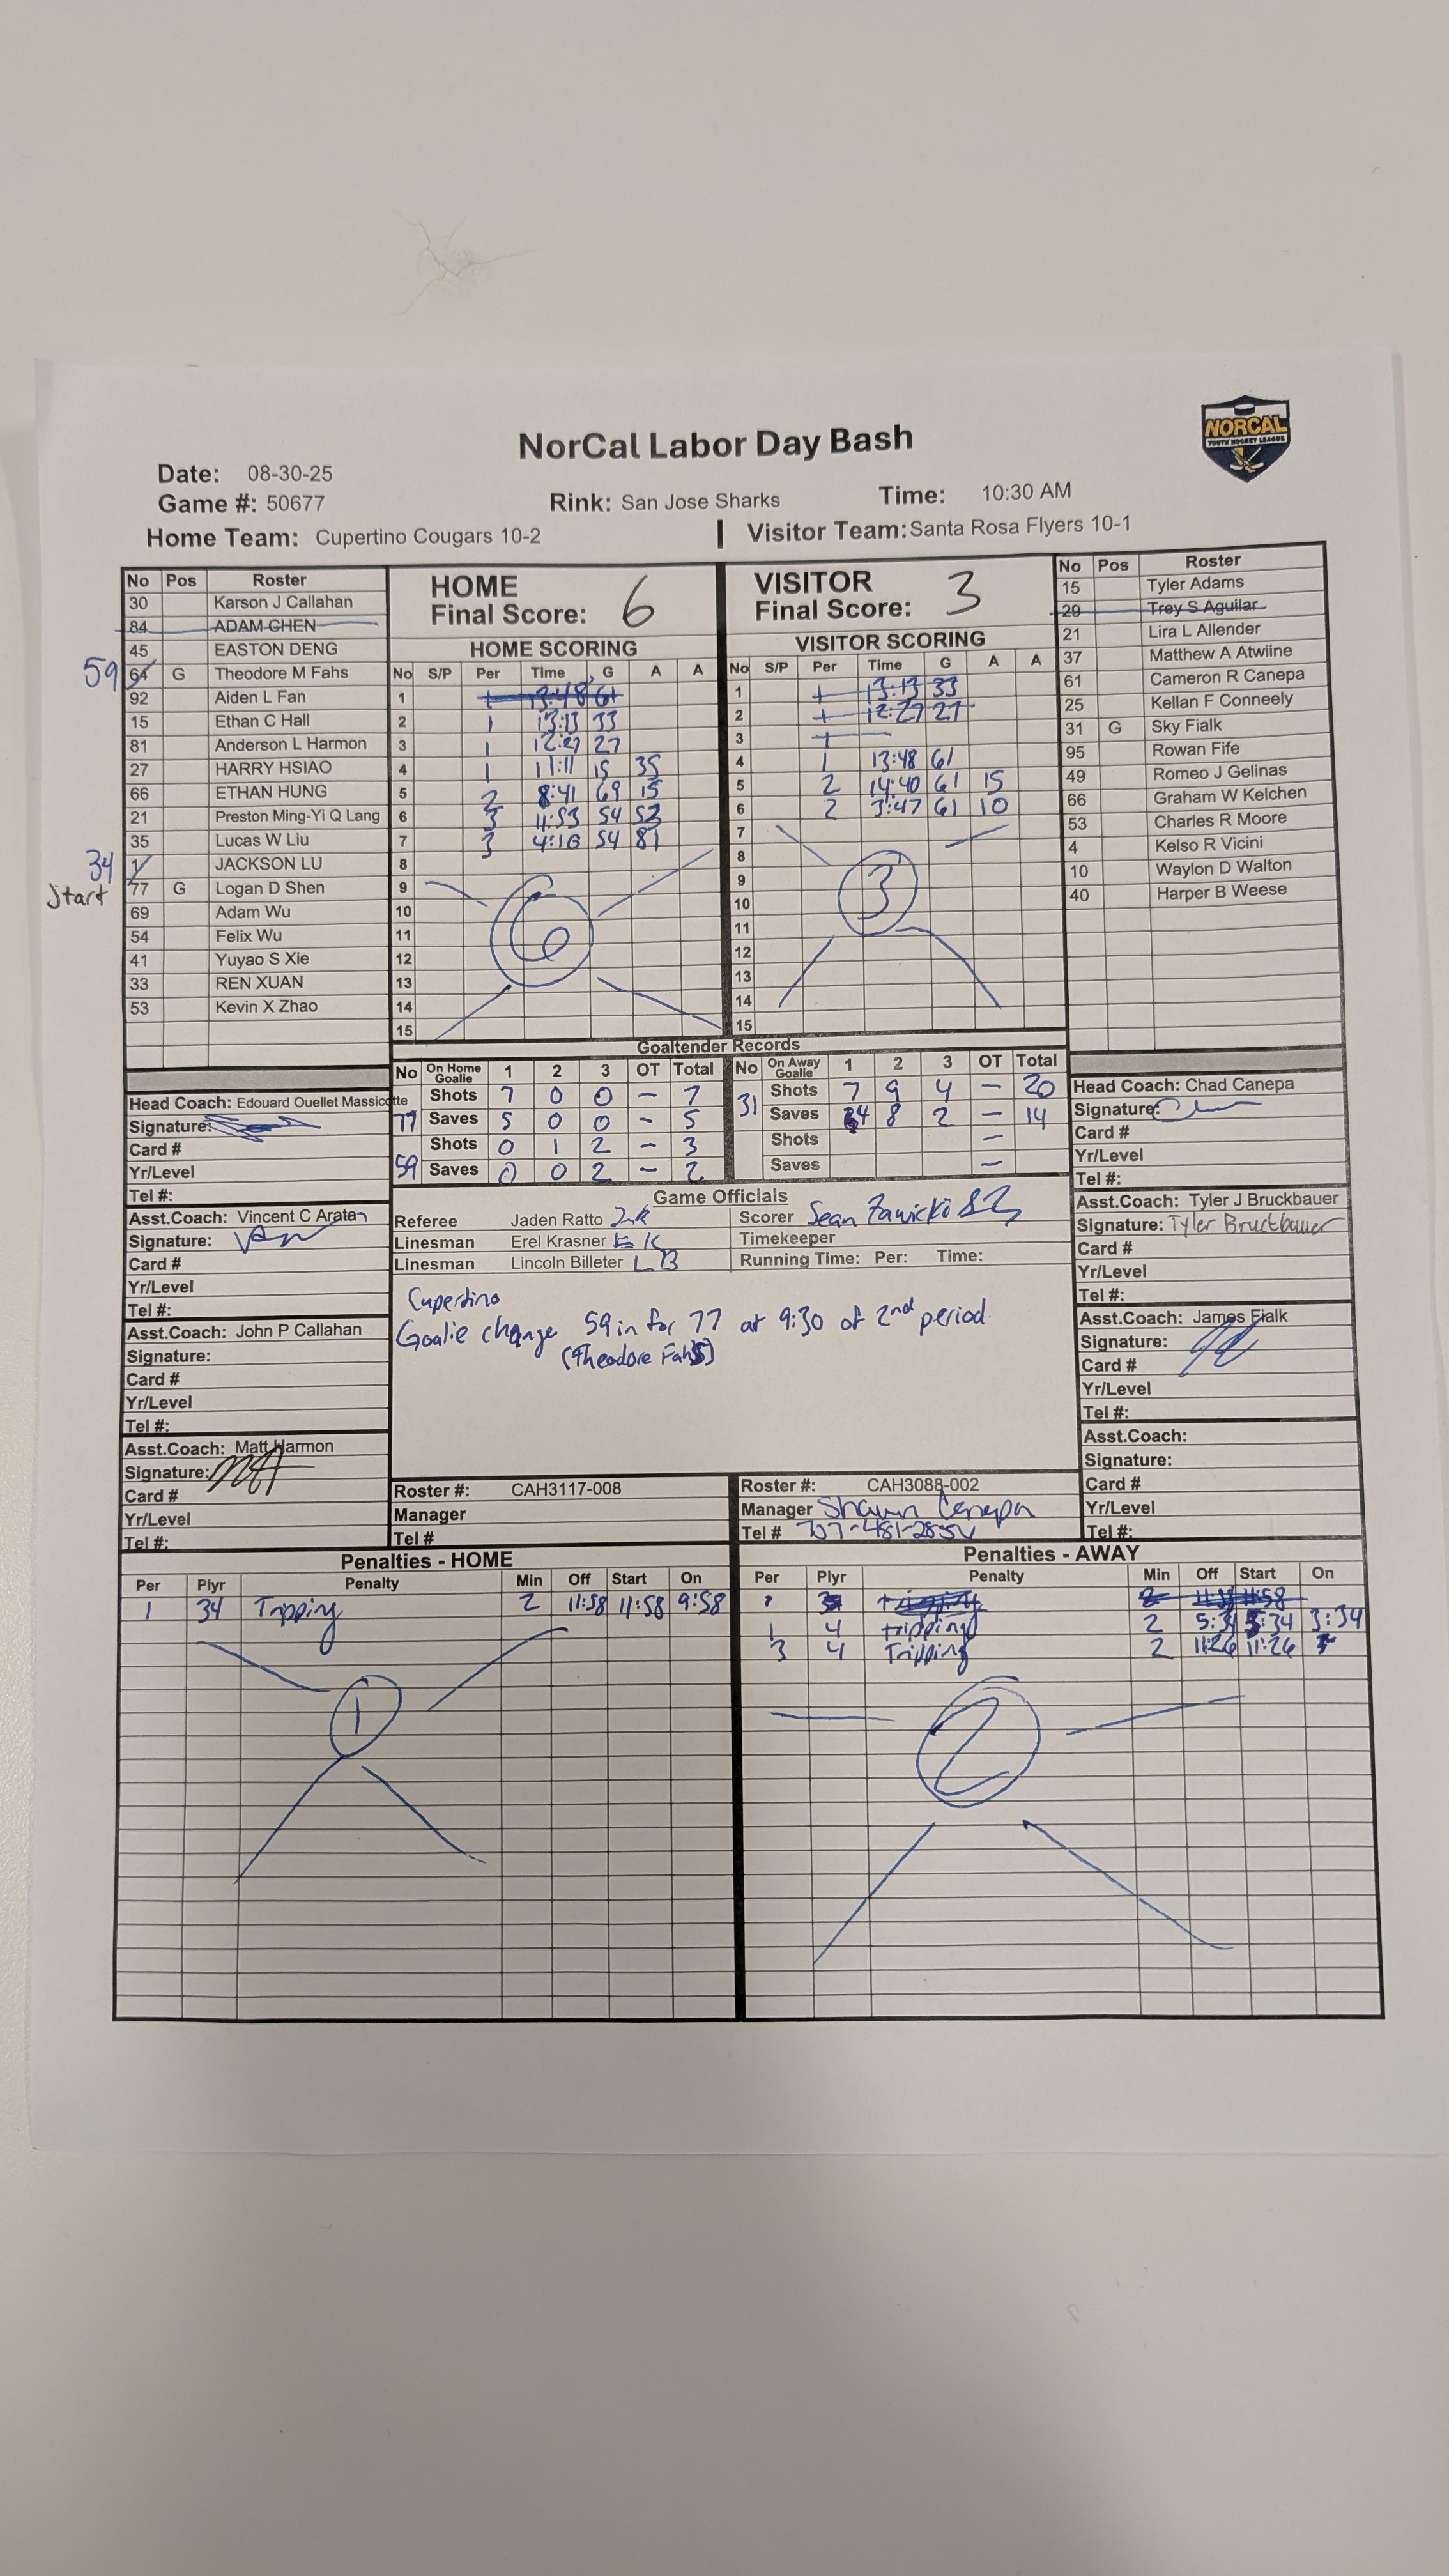 NORCAL
YOUTH HOCKEY LEAGUE
NorCal Labor Day Bash
Date: 08-30-25
Game #: 50677 Rink: San Jose Sharks Time: 10:30 AM
Home Team: Cupertino Cougars 10-2 | Visitor Team: Santa Rosa Flyers 10-1
No Pos Roster
30 Karson J Callahan
84 ADAM CHEN
45 EASTON DENG
59 64 G Theodore M Fahs
92 Aiden L Fan
15 Ethan C Hall
81 Anderson L Harmon
27 HARRY HSIAO
66 ETHAN HUNG
21 Preston Ming-Yi Q Lang
35 Lucas W Liu
34 1 JACKSON LU
Start 77 G Logan D Shen
69 Adam Wu
54 Felix Wu
41 Yuyao S Xie
33 REN XUAN
53 Kevin X Zhao
HOME
Final Score: 6
HOME SCORING
No S/P Per Time G A A
1 1 13:48 61
2 1 13:13 33
3 1 12:27 27
4 1 11:11 15 35
5 2 8:41 69 15
6 3 11:53 54 53
7 3 4:16 54 81
8
9
10
11
12
13
14
15
6
VISITOR
Final Score: 3
VISITOR SCORING
No S/P Per Time G A A
1 1 13:13 33
2 1 12:27 27
3 1
4 1 13:48 61
5 2 14:40 61 15
6 2 3:47 61 10
7
8
9
10
11
12
13
14
15
3
No Pos Roster
15 Tyler Adams
29 Trey S Aguilar
21 Lira L Allender
37 Matthew A Atwiine
61 Cameron R Canepa
25 Kellan F Conneely
31 G Sky Fialk
95 Rowan Fife
49 Romeo J Gelinas
66 Graham W Kelchen
53 Charles R Moore
4 Kelso R Vicini
10 Waylon D Walton
40 Harper B Weese
Goaltender Records
No On Home Goalie 1 2 3 OT Total
77 Shots 7 0 0 - 7
Saves 5 0 0 - 5
59 Shots 0 1 2 - 3
Saves 0 0 2 - 2
No On Away Goalie 1 2 3 OT Total
31 Shots 7 9 4 - 20
Saves 4 8 2 - 14
Shots -
Saves -
Head Coach: Edouard Ouellet Massicotte
Signature:
Card #
Yr/Level
Tel #:
Asst.Coach: Vincent C Aratan
Signature:
Card #
Yr/Level
Tel #:
Asst.Coach: John P Callahan
Signature:
Card #
Yr/Level
Tel #:
Asst.Coach: Matt Harmon
Signature:
Card #
Yr/Level
Tel #:
Game Officials
Referee Jaden Ratto JR
Linesman Erel Krasner EK
Linesman Lincoln Billeter LB
Scorer Sean Zawicki SZ
Timekeeper
Running Time: Per: Time:
Cupertino
Goalie change 59 in for 77 at 9:30 of 2nd period.
(Theodore Fahs)
Roster #: CAH3117-008
Manager
Tel #
Roster #: CAH3088-002
Manager Shawn Canepa
Tel #
Head Coach: Chad Canepa
Signature:
Card #
Yr/Level
Tel #:
Asst.Coach: Tyler J Bruckbauer
Signature: Tyler Bruckbauer
Card #
Yr/Level
Tel #:
Asst.Coach: James Fialk
Signature:
Card #
Yr/Level
Tel #:
Asst.Coach:
Signature:
Card #
Yr/Level
Tel #:
Penalties - HOME
Per Plyr Penalty Min Off Start On
1 34 Tripping 2 11:58 11:58 9:58
1
Penalties - AWAY
Per Plyr Penalty Min Off Start On
34 2 11:58
1 4 tripping 2 5:34 5:34 3:34
3 4 Tripping 2 11:26 11:26
2